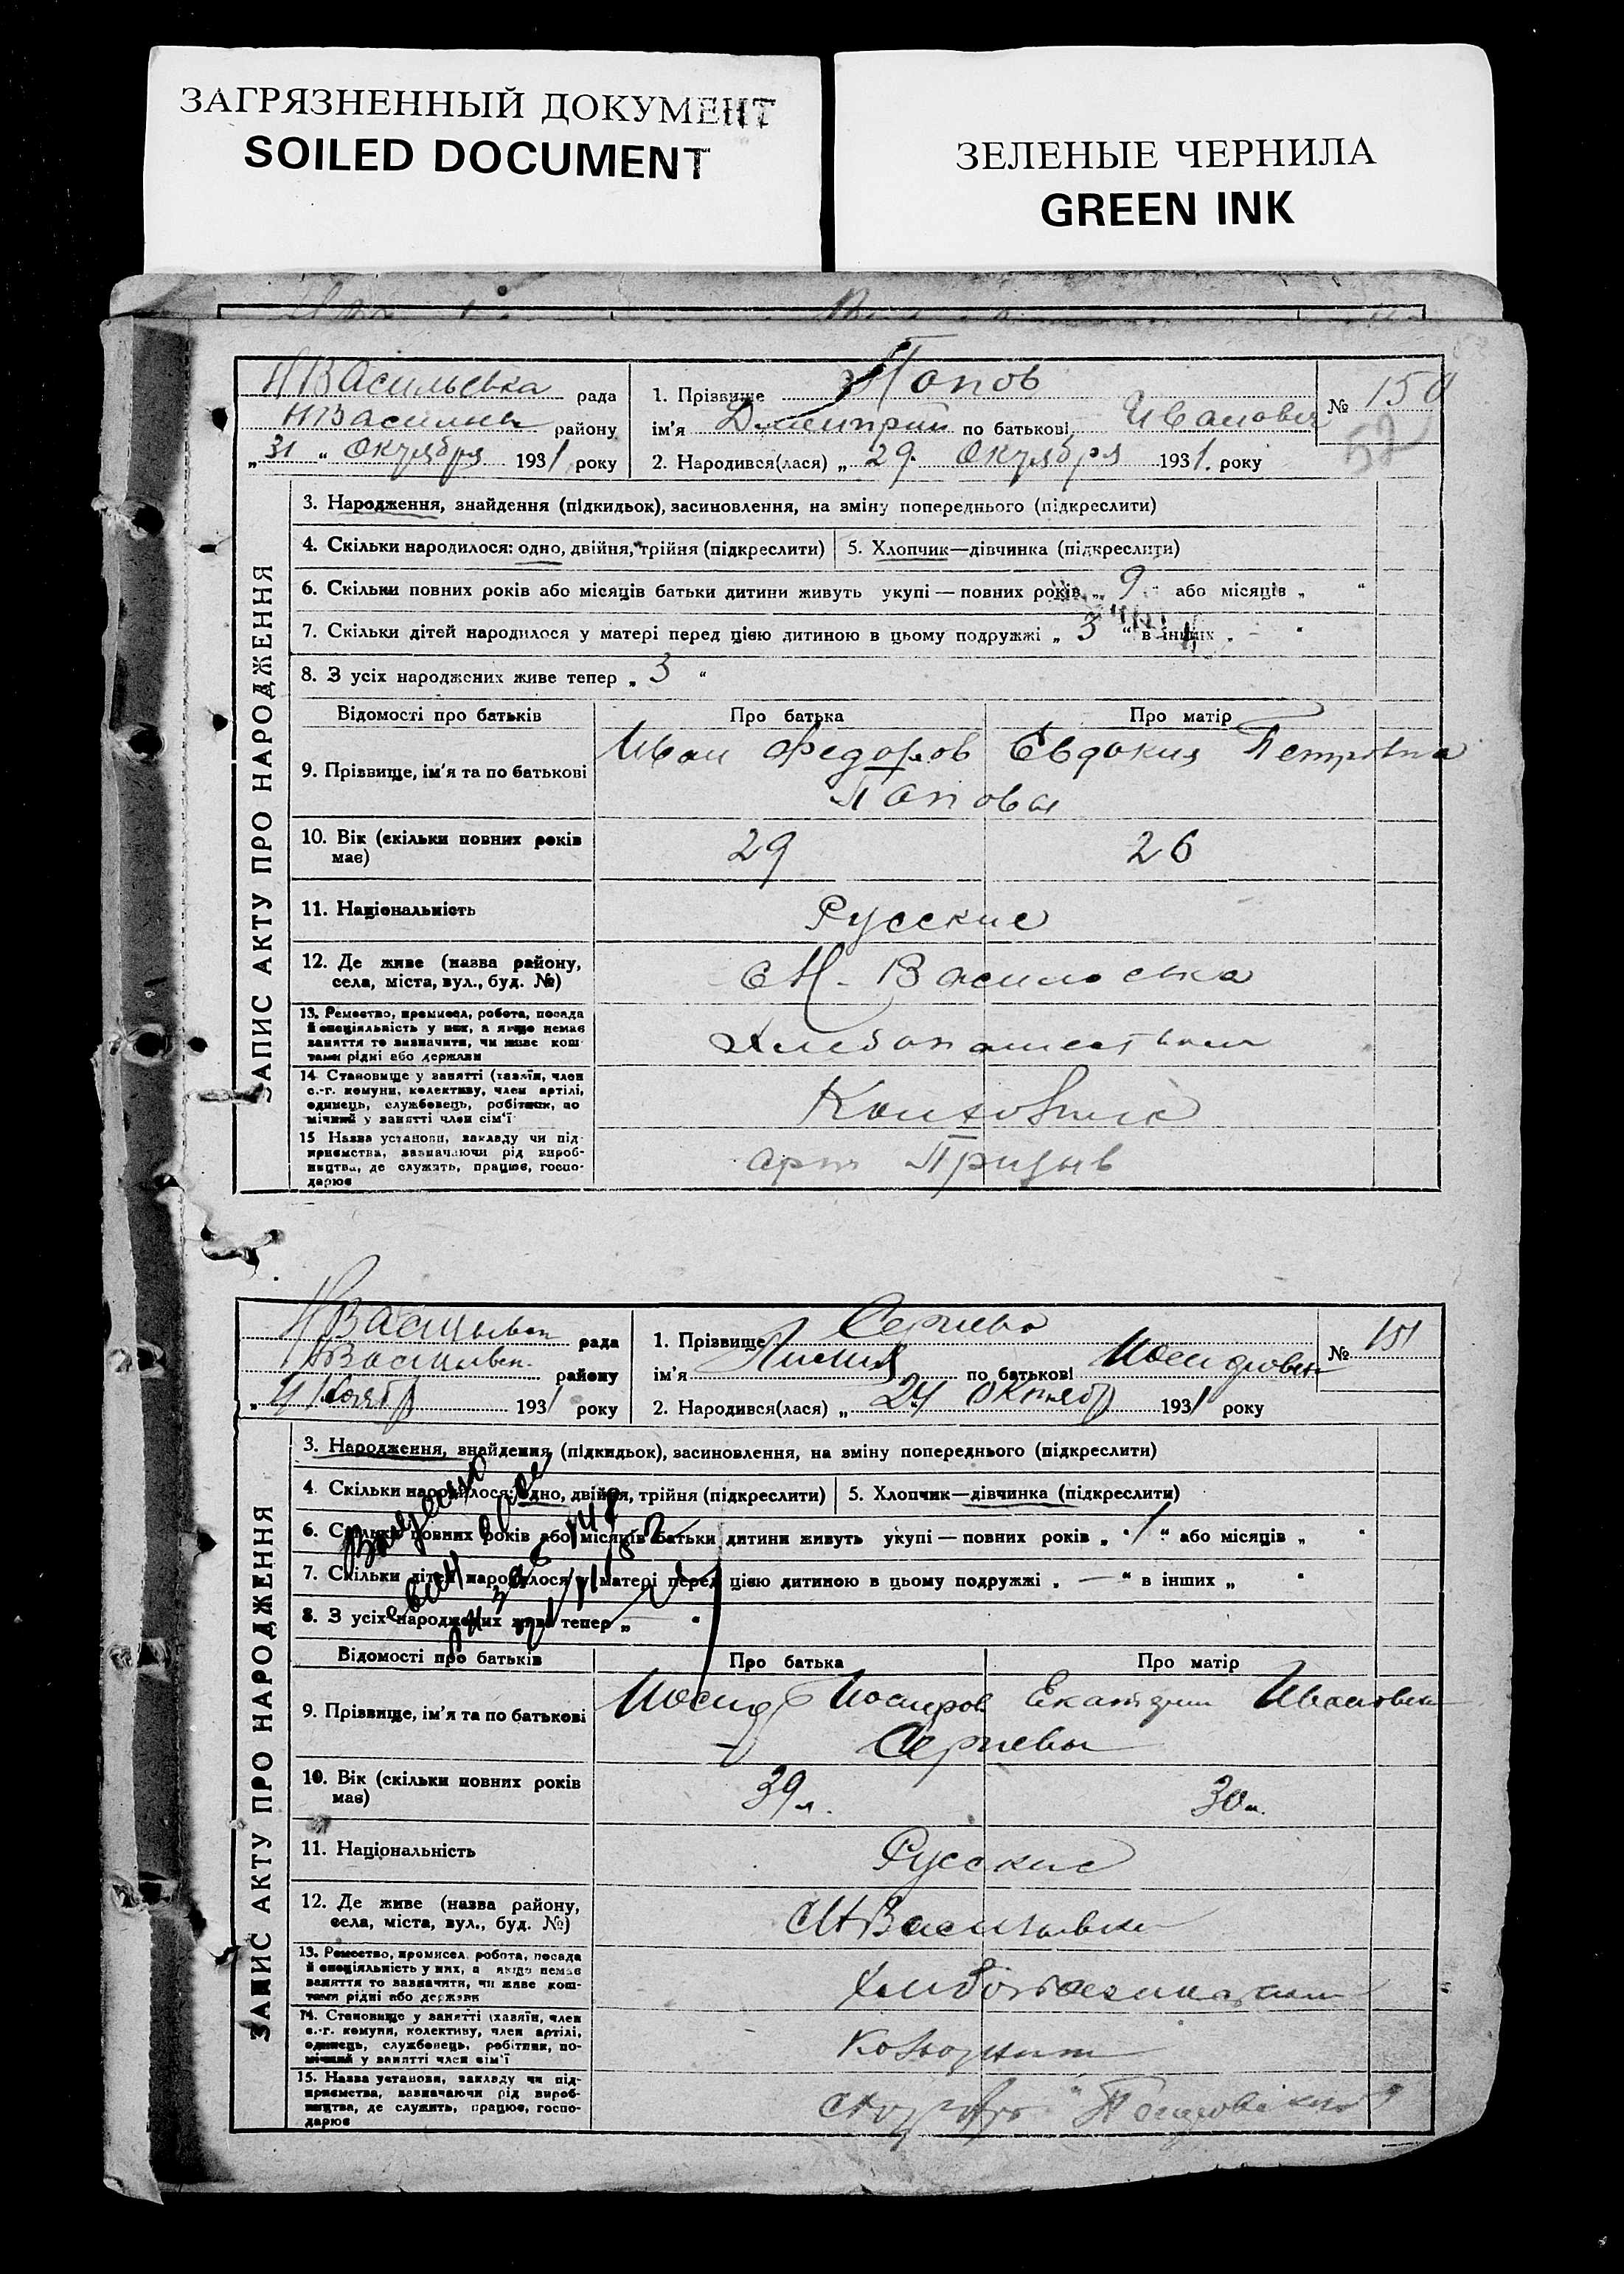 ЗАГРЯЗНЕННЫЙ ДОКУМЕНТ
SOILED DOCUMENT
ЗЕЛЕНЫЕ ЧЕРНИЛА
GREEN INK
ЗАПИС АКТУ ПРО НАРОДЖЕННЯ
Н Васильевка рада
району
„ 31 " Октября 1931 року
1. Прізвище Попов
ім'я Дмитрий по батькові Иванович
2. Народився(лася) „ 29. Октября 1931. року
№ 150
52
3. Народження, знайдення (підкидьок), засиновлення, на зміну попереднього (підкреслити)
4. Скільки народилося: одно, двійня, трійня (підкреслити) 5. Хлопчик—дівчинка (підкреслити)
6. Скільки повних років або місяців батьки дитини живуть укупі — повних років „ 9 " або місяців „ "
7. Скільки дітей народилося у матері перед цією дитиною в цьому подружжі „ 3 " в інших „ — "
8. З усіх народжених живе тепер „ 3 "
Відомості про батьків Про батька Про матір
9. Прізвище, ім'я та по батькові Иван Федоров Евдокия Петровна
Поповы
10. Вік (скільки повних років має) 29 26
11. Національність Русские
12. Де живе (назва району, села, міста, вул., буд. №) с Н. Василевка
13. Ремество, промисел, робота, посада й спеціяльність у них, а якщо немає заняття то зазначити, чи живе коштами рідні або держави
14 Становище у занятті (хазяїн, член с.-г. комуни, колективу, член артілі, одинець, службовець, робітник, помічний у занятті член сім'ї
15 Назва установи, закладу чи підприємства, зазначаючи рід виробництва, де служить, працює, господарює арт Призыв
ЗАПИС АКТУ ПРО НАРОДЖЕННЯ
рада
району
1931 року
1. Прізвище Сергиева
ім'я по батькові Иосифовн
2. Народився(лася) „ 24 октябр 1931 року
№ 151
3. Народження, знайдення (підкидьок), засиновлення, на зміну попереднього (підкреслити)
4. Скільки народилося: одно, двійня, трійня (підкреслити) 5. Хлопчик—дівчинка (підкреслити)
6. Скільки повних років або місяців батьки дитини живуть укупі — повних років „ 1 " або місяців „ "
7. Скільки дітей народилося у матері перед цією дитиною в цьому подружжі „ — " в інших „ "
8. З усіх народжених живе тепер „ "
Відомості про батьків Про батька Про матір
9. Прізвище, ім'я та по батькові Иосиф Иосифов Екатерин Ивановн
Сергиевы
10. Вік (скільки повних років має) 39 л. 30 л.
11. Національність Русские
12. Де живе (назва району, села, міста, вул., буд. №)
13. Ремество, промисел, робота, посада й спеціяльність у них, а якщо немає заняття то зазначити, чи живе коштами рідні або держави
14. Становище у занятті (хазяїн, член с.-г. комуни, колективу, член артілі, одинець, службовець, робітник, помічний у занятті член сім'ї
15. Назва установи, закладу чи підприємства, зазначаючи рід виробництва, де служить, працює, господарює